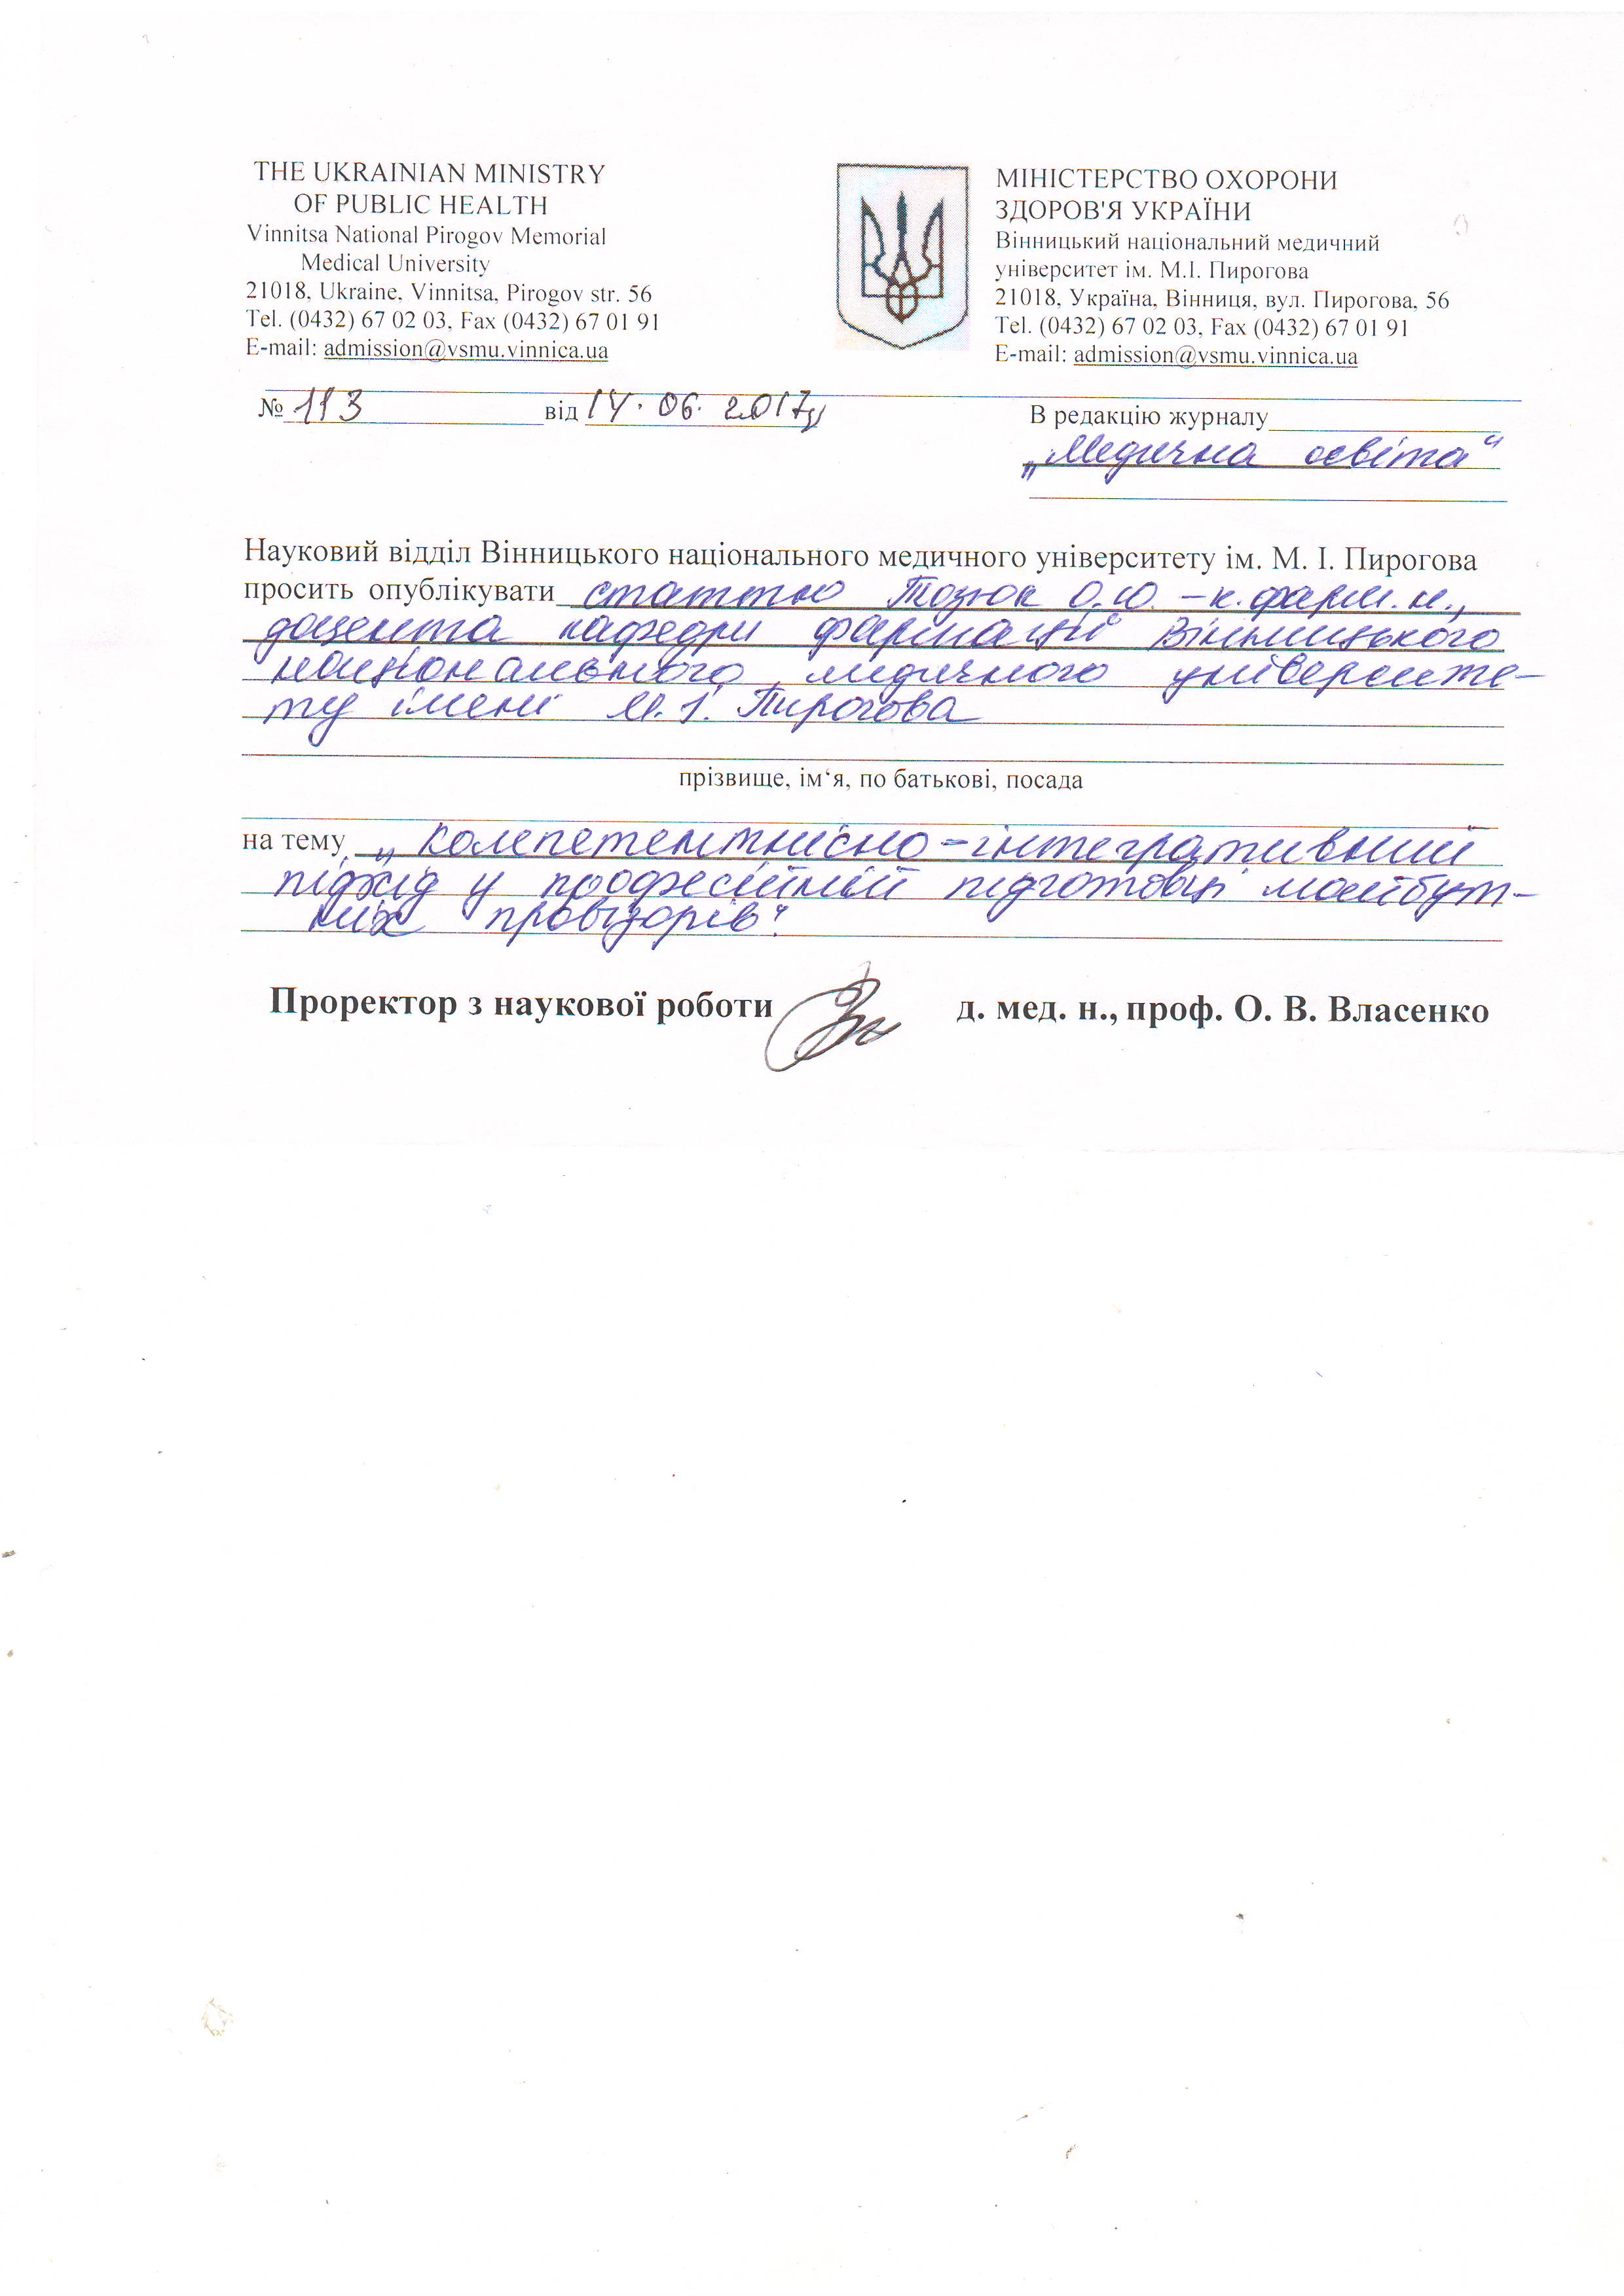 THE UKRAINIAN MINISTRY
OF PUBLIC HEALTH
Vinnitsa National Pirogov Memorial
Medical University
21018, Ukraine, Vinnitsa, Pirogov str. 56
Tel. (0432) 67 02 03, Fax (0432) 67 01 91
E-mail: admission@vsmu.vinnica.ua
МІНІСТЕРСТВО ОХОРОНИ
ЗДОРОВ'Я УКРАЇНИ
Вінницький національний медичний
університет ім. М.І. Пирогова
21018, Україна, Вінниця, вул. Пирогова, 56
Tel. (0432) 67 02 03, Fax (0432) 67 01 91
E-mail: admission@vsmu.vinnica.ua
№ 113 від 14.06.2017р
В редакцію журналу
„Медична освіта“
Науковий відділ Вінницького національного медичного університету ім. М. І. Пирогова
просить опублікувати статтю Тозюк О.Ю. – к.фарм.н.,
доцента кафедри фармації Вінницького
національного медичного університе-
ту імені М.І. Пирогова
прізвище, ім‘я, по батькові, посада
на тему „Компетентнісно-інтегративний
підхід у професійній підготовці майбут-
ніх провізорів“.
Проректор з наукової роботи д. мед. н., проф. О. В. Власенко